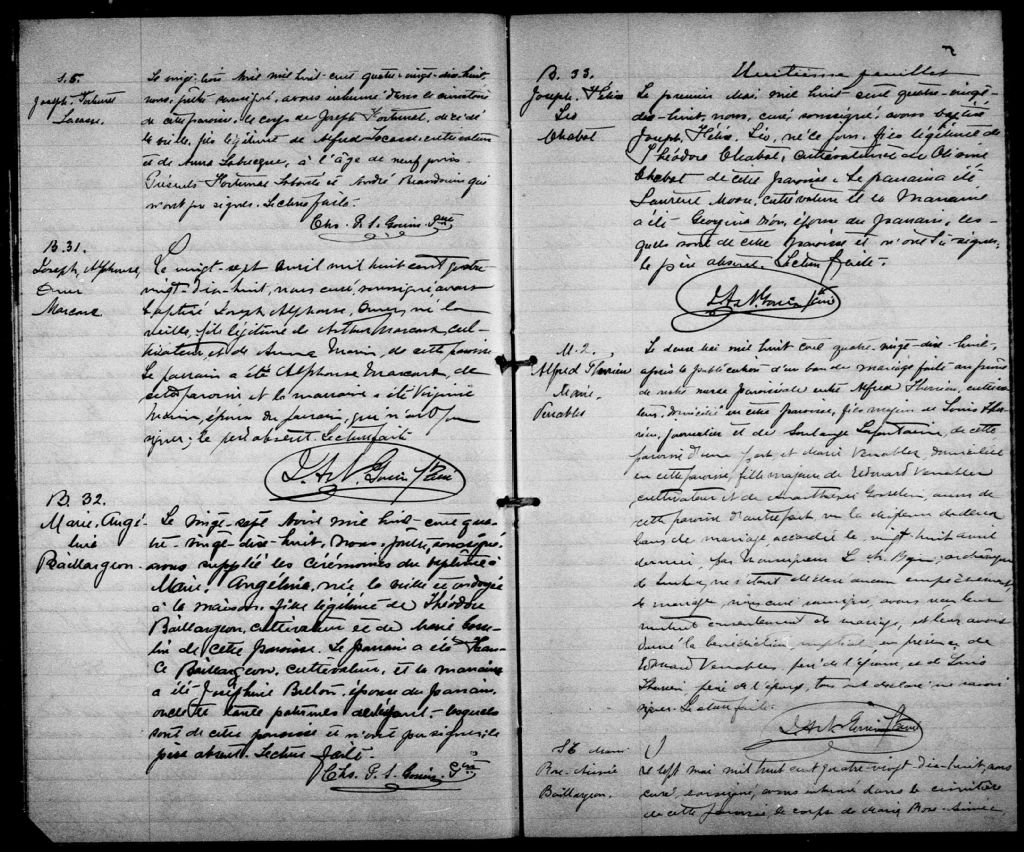 S. 5.
Joseph Fortunat
Lacasse
Le vingt-trois Avril mil huit cent quatre-vingt-dix-huit
nous, prêtre soussigné, avons inhumé dans le cimetière
de cette paroisse, le corps de Joseph Fortunat, décédé
la veille, fils légitime de Alfred Lacasse, cultivateur
et de Anna Labrecque, à l'âge de neuf jours.
Présents Fortunat et André Beaudouin qui
n'ont pu signer. Lecture faite.
Chs. P. S. Gouin Ptre
B. 31.
Joseph, Alphonse,
Omer
Marcoux
Le vingt-sept avril mil huit cent quatre
vingt-dix-huit, nous curé, soussigné, avons
baptisé Joseph Alphonse, Omer, né la
veille, fils légitime de Arthur Marcoux, cul-
tivateur, et de Anna Morin, de cette paroisse
Le parrain a été Alphonse Marcoux, de
cette paroisse et la marraine a été Virginie
Morin, épouse du parrain, qui n'ont pu
signer; le père absent. Lecture faite
J. A. N. Gouin Ptre
B. 32
Marie-Angé-
line
Baillargeon.
Le vingt-sept Avril mil huit-cent qua-
tre-vingt-dix-huit, Nous, prêtre, soussigné,
avons suppléé les cérémonies du baptême à
Marie, Angélina, née la veille et ondoyée
à la maison, fille légitime de Théodore
Baillargeon, cultivateur et de Marie Gosse-
lin de cette paroisse. Le parrain a été
Baillargeon, cultivateur, et la marraine
a été Joséphine Bilodeau, épouse du parrain,
oncle et tante paternels de l'enfant - lesquels
sont de cette paroisse et n'ont pu signer; le
père absent. Lecture faite
Chs. P. S. Gouin. Ptre
Huitième feuillet
B. 33.
Joseph, Hélio
Léo
Chabot
Le premier Mai mil huit cent quatre-vingt-
dix-huit, nous, curé, soussigné, avons baptisé
Joseph, Hélio, Léo, né ce jour, fils légitime de
Théodore Chabot, cultivateur et de
Chabot de cette paroisse. Le parrain a été
Laurent, cultivateur et la Marraine
a été Georgina Dion, épouse du parrain, les-
quels sont de cette paroisse et n'ont su signer,
le père absent. Lecture faite.
J. A. N. Gouin Ptre
M. 2.
Alfred Therrien
Marie
Venables
Le deux Mai mil huit cent quatre-vingt-dix-huit,
après la publication d'un ban de mariage faite au prône
de notre messe paroissiale entre Alfred Therrien, cultiva-
teur, domicilié en cette paroisse, fils majeur de Louis Ther-
rien, journalier et de Soulange Lafontaine, de cette
paroisse d'une part et Marie Venables, domiciliée
en cette paroisse, fille majeure de Edouard Venables
cultivateur et de Gosselin, aussi de
cette paroisse d'autre part, vu la dispense de deux
bans de mariage, accordée le vingt-huit avril
dernier, par Monseigneur L. N. Bégin, archevêque
de Québec, ne s'étant découvert aucun empêchement
de mariage, nous curé soussigné, avons reçu leur
mutuel consentement de mariage, et leur avons
donné la bénédiction nuptiale en présence de
Edouard Venables, père de l'épouse, et de Louis
Therrien, père de l'époux, tous ont déclaré ne savoir
signer. Lecture faite.
J. A. N. Gouin Ptre
S. 6
Rose-Aimée
Baillargeon.
Le sept mai mil huit cent quatre-vingt-dix-huit, nous
curé, soussigné, avons inhumé dans le cimetière
de cette paroisse, le corps de Marie Rose-Aimée,